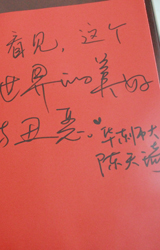 看见，这个
世界的美好
与丑恶。
华东师大
陈天